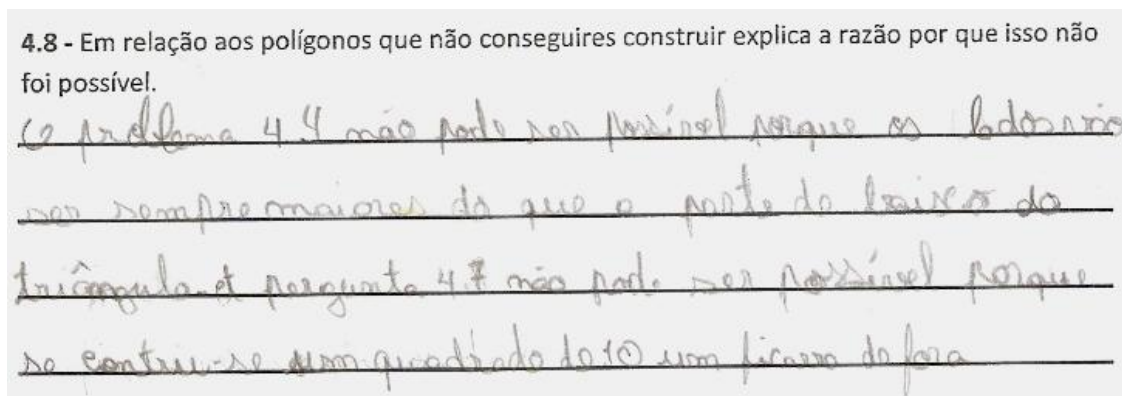 4.8 - Em relação aos polígonos que não conseguires construir explica a razão por que isso não
foi possível.
O problema 4.4 não pode ser possível porque os lados
ser sempre maiores do que a parte de baixo do
triângulo. A pergunta 4.7 não pode ser possível porque
se contrui-se um quadrado de 10 um ficasse de fora